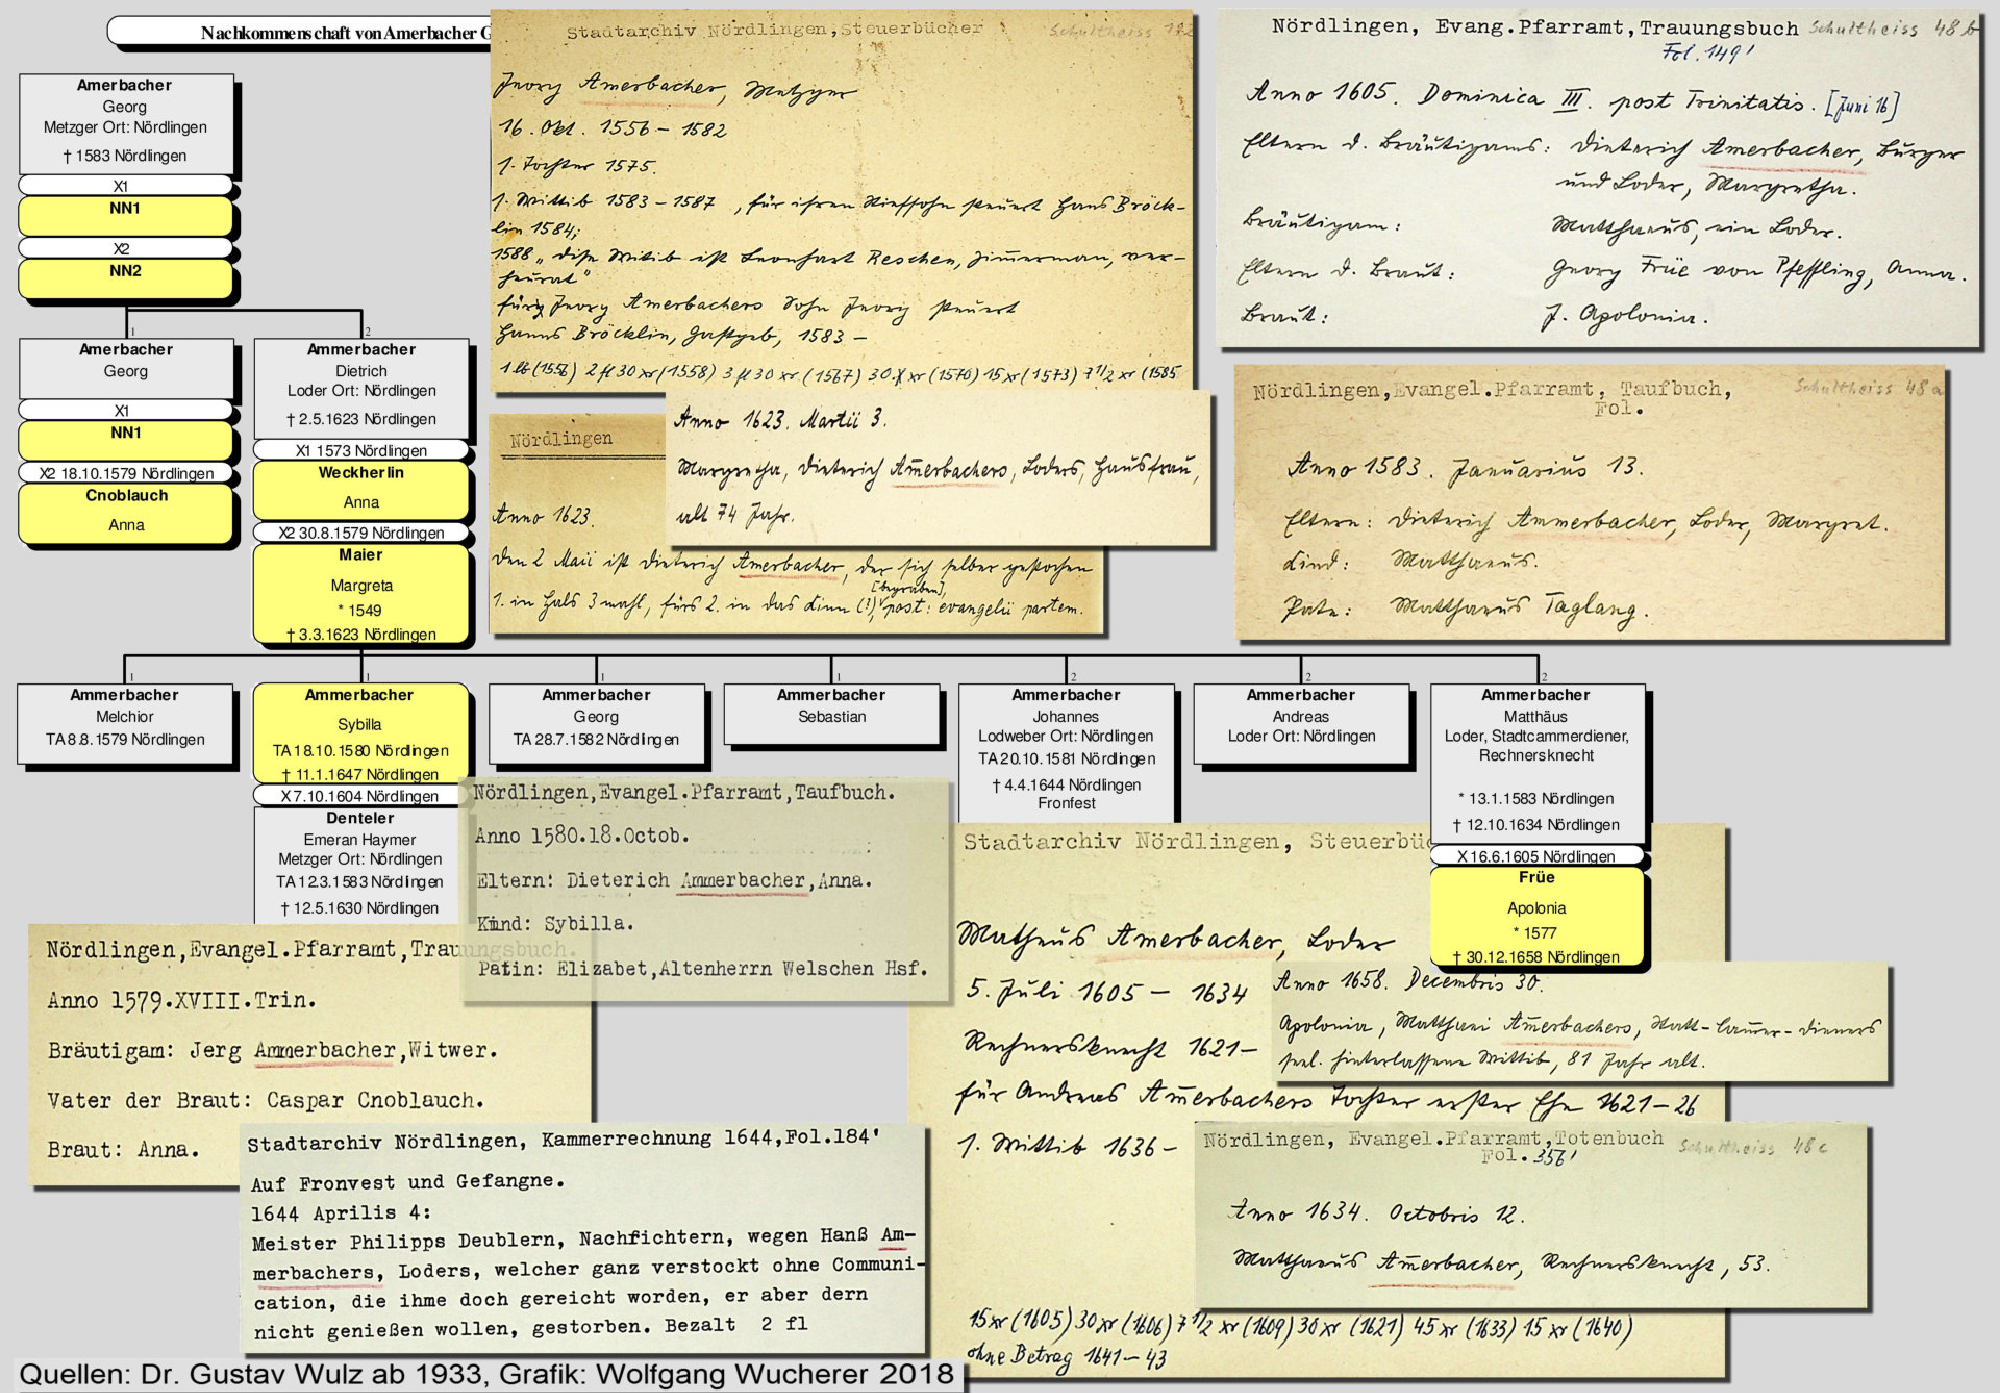 Nachkommenschaft von Amerbacher G
Amerbacher
Georg
Metzger Ort: Nördlingen
† 1583 Nördlingen
X1
NN1
X2
NN2
1
2
Amerbacher
Georg
X1
NN1
X2 18.10.1579 Nördlingen
Cnoblauch
Anna
Ammerbacher
Dietrich
Loder Ort: Nördlingen
† 2.5.1623 Nördlingen
X1 1573 Nördlingen
Weckherlin
Anna
X2 30.8.1579 Nördlingen
Maier
Margreta
* 1549
† 3.3.1623 Nördlingen
Stadtarchiv Nördlingen, Steuerbücher Schultheiss 122
Jeorg Amerbacher, Metzger
16. Okt. 1556 – 1582
1. Tochter 1575.
1. Wittib 1583 – 1587 , für ihren Stiefsohn steuert Hans Bröck-
lin 1584;
1588 „ diese Wittib ist Leonhart Reschen, Zimerman, ver-
heurat"
für Jeorg Amerbachers Sohn Jeorg steuert
Hanns Bröcklin, Gastgeb, 1583 –
1 lb (1556) 2 fl 30 xr (1558) 3 fl 30 xr (1567) 30 xr (1570) 15 xr (1573) 7 1/2 xr (1585
Nördlingen, Evang.Pfarramt, Trauungsbuch Schultheiss 48 b
Fol. 149'
Anno 1605. Dominica III. post Trinitatis. [Juni 16]
Eltern d. Bräutigams: Dieterich Amerbacher, Bürger
und Loder, Margretha.
Bräutigam: Matthaeus, ein Loder.
Eltern d. Braut: Georg Früe von Pfeffling, Anna.
Braut: J. Apolonia.
Nördlingen
Anno 1623.
den 2 Maii ist Dieterich Amerbacher, der sich selber gestochen
[begraben],
1. in Hals 3 mahl, fürs 2. in das Kinn (?) post: evangelii partem.
Anno 1623. Martii 3.
Margretha, Dieterich Am̄erbachers, Loders, Hausfrau,
alt 74 Jahr.
Nördlingen,Evangel.Pfarramt, Taufbuch, Schultheiss 48 a
Fol.
Anno 1583. Januarius 13.
Eltern: Dieterich Ammerbacher, Loder, Margret.
Kind: Matthaeus.
Pate: Matthaeus Taglang.
1
1
1
1
2
2
2
Ammerbacher
Melchior
TA 8.8.1579 Nördlingen
Ammerbacher
Sybilla
TA 18.10.1580 Nördlingen
† 11.1.1647 Nördlingen
X 7.10.1604 Nördlingen
Denteler
Emeran Haymer
Metzger Ort: Nördlingen
TA 12.3.1583 Nördlingen
† 12.5.1630 Nördlingen
Ammerbacher
Georg
TA 28.7.1582 Nördlingen
Ammerbacher
Sebastian
Ammerbacher
Johannes
Lodweber Ort: Nördlingen
TA 20.10.1581 Nördlingen
† 4.4.1644 Nördlingen
Fronfest
Ammerbacher
Andreas
Loder Ort: Nördlingen
Ammerbacher
Matthäus
Loder, Stadtcammerdiener,
Rechnersknecht
* 13.1.1583 Nördlingen
† 12.10.1634 Nördlingen
X 16.6.1605 Nördlingen
Früe
Apolonia
* 1577
† 30.12.1658 Nördlingen
Nördlingen,Evangel.Pfarramt,Taufbuch.
Anno 1580.18.Octob.
Eltern: Dieterich Ammerbacher,Anna.
Kind: Sybilla.
Patin: Elizabet,Altenherrn Welschen Hsf.
Nördlingen,Evangel.Pfarramt,Trauungsbuch.
Anno 1579.XVIII.Trin.
Bräutigam: Jerg Ammerbacher,Witwer.
Vater der Braut: Caspar Cnoblauch.
Braut: Anna.
Stadtarchiv Nördlingen, Kammerrechnung 1644,Fol.184'
Auf Fronvest und Gefangne.
1644 Aprilis 4:
Meister Philipps Deublern, Nachfichtern, wegen Hanß Am-
merbachers, Loders, welcher ganz verstockt ohne Communi-
cation, die ihme doch gereicht worden, er aber dern
nicht genießen wollen, gestorben. Bezalt 2 fl
Stadtarchiv Nördlingen, Steuerbüc
Matheus Amerbacher, Loder
5. Juli 1605 – 1634
Rechnersknecht 1621–
für Andreas Am̄erbachers Tochter erster Ehe 1621–26
1. Wittib 1636 –
15 xr (1605) 30 xr (1606) 7 1/2 xr (1609) 30 xr (1621) 45 xr (1633) 15 xr (1640)
ohne Betrag 1641–43
Anno 1658. Decembris 30.
Apolonia, Matthaei Am̄erbachers, Statt-Cam̄er-Dieners
seel. hinterlassene Wittib, 81 Jahr alt.
Nördlingen, Evangel.Pfarramt,Totenbuch Schultheiss 48 c
Fol. 356'
Anno 1634. Octobris 12.
Matthaeus Am̄erbacher, Rechnersknecht, 53.
Quellen: Dr. Gustav Wulz ab 1933, Grafik: Wolfgang Wucherer 2018